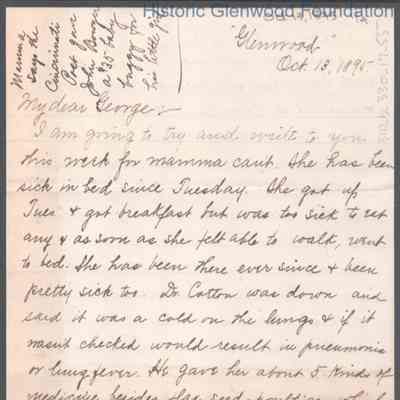 Historic Glenwood Foundation
Mamma
says the
Cincinnati
Post gave
John Bonger
a $35 baby
buggy for
his little
"Glenwood"
Oct. 13, 1895
My dear George:
I am going to try and write to you
this week for mamma cant. She has been
sick in bed since Tuesday. She got up
Tues & got breakfast but was too sick to eat
any & as soon as she felt able to walk, went
to bed. She has been there ever since & been
pretty sick too. Dr. Cotton was down and
said it was a cold on the lungs & if it
wasn't checked would result in pneumonia
or lung fever. He gave her about 5 kinds of
medicine besides flax seed poultices which